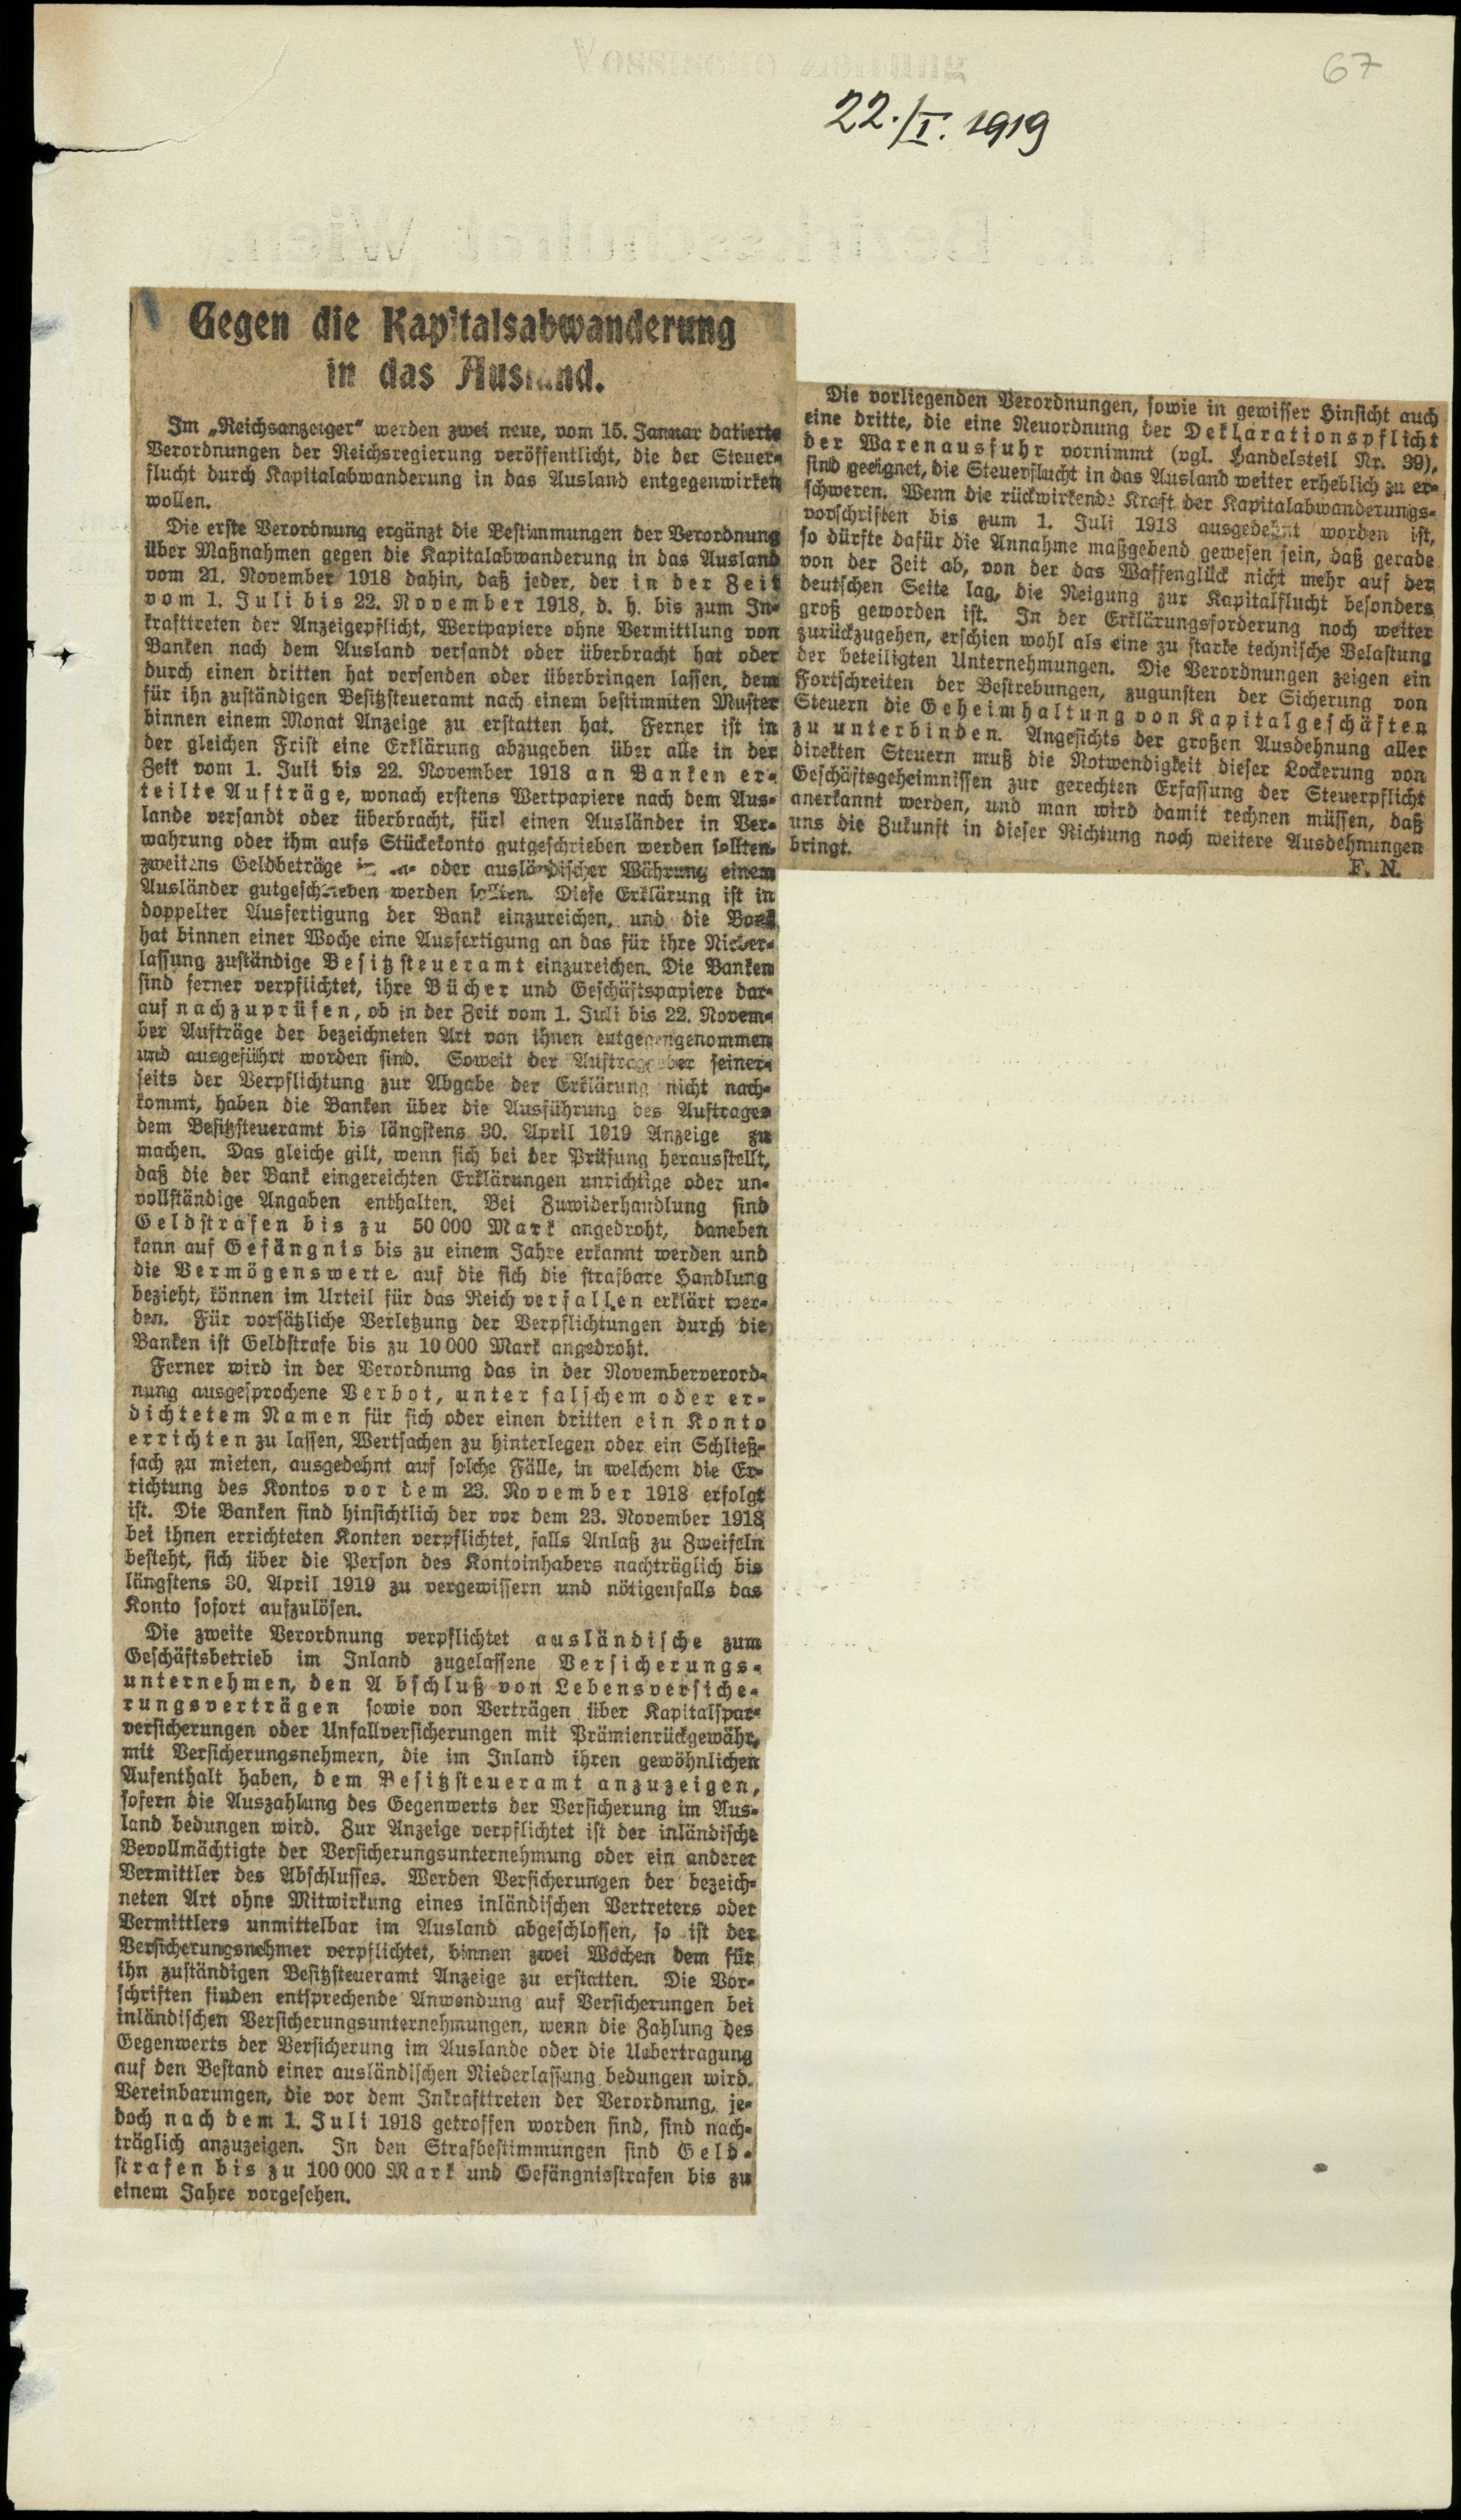 67
22./I. 1919
Gegen die Kapitalsabwanderung
in das Ausland.
Im „Reichsanzeiger“ werden zwei neue, vom 15. Januar datierte
Verordnungen der Reichsregierung veröffentlicht, die der Steuer-
flucht durch Kapitalabwanderung in das Ausland entgegenwirken
wollen.
Die erste Verordnung ergänzt die Bestimmungen der Verordnung
über Maßnahmen gegen die Kapitalabwanderung in das Ausland
vom 21. November 1918 dahin, daß jeder, der in der Zeit
vom 1. Juli bis 22. November 1918, d. h. bis zum In-
krafttreten der Anzeigepflicht, Wertpapiere ohne Vermittlung von
Banken nach dem Ausland versandt oder überbracht hat oder
durch einen dritten hat versenden oder überbringen lassen, dem
für ihn zuständigen Besitzsteueramt nach einem bestimmten Muster
binnen einem Monat Anzeige zu erstatten hat. Ferner ist in
der gleichen Frist eine Erklärung abzugeben über alle in der
Zeit vom 1. Juli bis 22. November 1918 an Banken er-
teilte Aufträge, wonach erstens Wertpapiere nach dem Aus-
lande versandt oder überbracht, für einen Ausländer in Ver-
wahrung oder ihm aufs Stückekonto gutgeschrieben werden sollten,
zweitens Geldbeträge in oder ausländischer Währung einem
Ausländer gutgeschrieben werden sollten. Diese Erklärung ist in
doppelter Ausfertigung der Bank einzureichen, und die Bank
hat binnen einer Woche eine Ausfertigung an das für ihre Nieder-
lassung zuständige Besitzsteueramt einzureichen. Die Banken
sind ferner verpflichtet, ihre Bücher und Geschäftspapiere dar-
auf nachzuprüfen, ob in der Zeit vom 1. Juli bis 22. Novem-
ber Aufträge der bezeichneten Art von ihnen entgegengenommen
und ausgeführt worden sind. Soweit der Auftraggeber seiner-
seits der Verpflichtung zur Abgabe der Erklärung nicht nach-
kommt, haben die Banken über die Ausführung des Auftrages
dem Besitzsteueramt bis längstens 30. April 1919 Anzeige zu
machen. Das gleiche gilt, wenn sich bei der Prüfung herausstellt,
daß die der Bank eingereichten Erklärungen unrichtige oder un-
vollständige Angaben enthalten. Bei Zuwiderhandlung sind
Geldstrafen bis zu 50 000 Mark angedroht, daneben
kann auf Gefängnis bis zu einem Jahre erkannt werden und
die Vermögenswerte auf die sich die strafbare Handlung
bezieht, können im Urteil für das Reich verfallen erklärt wer-
den. Für vorsätzliche Verletzung der Verpflichtungen durch die
Banken ist Geldstrafe bis zu 10 000 Mark angedroht.
Ferner wird in der Verordnung das in der Novemberverord-
nung ausgesprochene Verbot, unter falschem oder er-
dichtetem Namen für sich oder einen dritten ein Konto
errichten zu lassen, Wertsachen zu hinterlegen oder ein Schließ-
fach zu mieten, ausgedehnt auf solche Fälle, in welchem die Er-
richtung des Kontos vor dem 23. November 1918 erfolgt
ist. Die Banken sind hinsichtlich der vor dem 23. November 1918
bei ihnen errichteten Konten verpflichtet, falls Anlaß zu Zweifeln
besteht, sich über die Person des Kontoinhabers nachträglich bis
längstens 30. April 1919 zu vergewissern und nötigenfalls das
Konto sofort aufzulösen.
Die zweite Verordnung verpflichtet ausländische zum
Geschäftsbetrieb im Inland zugelassene Versicherungs-
unternehmen, den Abschluß von Lebensversiche-
rungsverträgen sowie von Verträgen über Kapitalspar-
versicherungen oder Unfallversicherungen mit Prämienrückgewähr,
mit Versicherungsnehmern, die im Inland ihren gewöhnlichen
Aufenthalt haben, dem Besitzsteueramt anzuzeigen,
sofern die Auszahlung des Gegenwerts der Versicherung im Aus-
land bedungen wird. Zur Anzeige verpflichtet ist der inländische
Bevollmächtigte der Versicherungsunternehmung oder ein anderer
Vermittler des Abschlusses. Werden Versicherungen der bezeich-
neten Art ohne Mitwirkung eines inländischen Vertreters oder
Vermittlers unmittelbar im Ausland abgeschlossen, so ist der
Versicherungsnehmer verpflichtet, binnen zwei Wochen dem für
ihn zuständigen Besitzsteueramt Anzeige zu erstatten. Die Vor-
schriften finden entsprechende Anwendung auf Versicherungen bei
inländischen Versicherungsunternehmungen, wenn die Zahlung des
Gegenwerts der Versicherung im Auslande oder die Uebertragung
auf den Bestand einer ausländischen Niederlassung bedungen wird.
Vereinbarungen, die vor dem Inkrafttreten der Verordnung, je-
doch nach dem 1. Juli 1918 getroffen worden sind, sind nach-
träglich anzuzeigen. In den Strafbestimmungen sind Geld-
strafen bis zu 100 000 Mark und Gefängnisstrafen bis zu
einem Jahre vorgesehen.
Die vorliegenden Verordnungen, sowie in gewisser Hinsicht auch
eine dritte, die eine Neuordnung der Deklarationspflicht
der Warenausfuhr vornimmt (vgl. Handelsteil Nr. 39),
sind geeignet, die Steuerflucht in das Ausland weiter erheblich zu er-
schweren. Wenn die rückwirkende Kraft der Kapitalabwanderungs-
vorschriften bis zum 1. Juli 1918 ausgedehnt worden ist,
so dürfte dafür die Annahme maßgebend gewesen sein, daß gerade
von der Zeit ab, von der das Waffenglück nicht mehr auf der
deutschen Seite lag, die Neigung zur Kapitalflucht besonders
groß geworden ist. In der Erklärungsforderung noch weiter
zurückzugehen, erschien wohl als eine zu starke technische Belastung
der beteiligten Unternehmungen. Die Verordnungen zeigen ein
Fortschreiten der Bestrebungen, zugunsten der Sicherung von
Steuern die Geheimhaltung von Kapitalgeschäften
zu unterbinden. Angesichts der großen Ausdehnung aller
direkten Steuern muß die Notwendigkeit dieser Lockerung von
Geschäftsgeheimnissen zur gerechten Erfassung der Steuerpflicht
anerkannt werden, und man wird damit rechnen müssen, daß
uns die Zukunft in dieser Richtung noch weitere Ausdehnungen
bringt.
F. N.